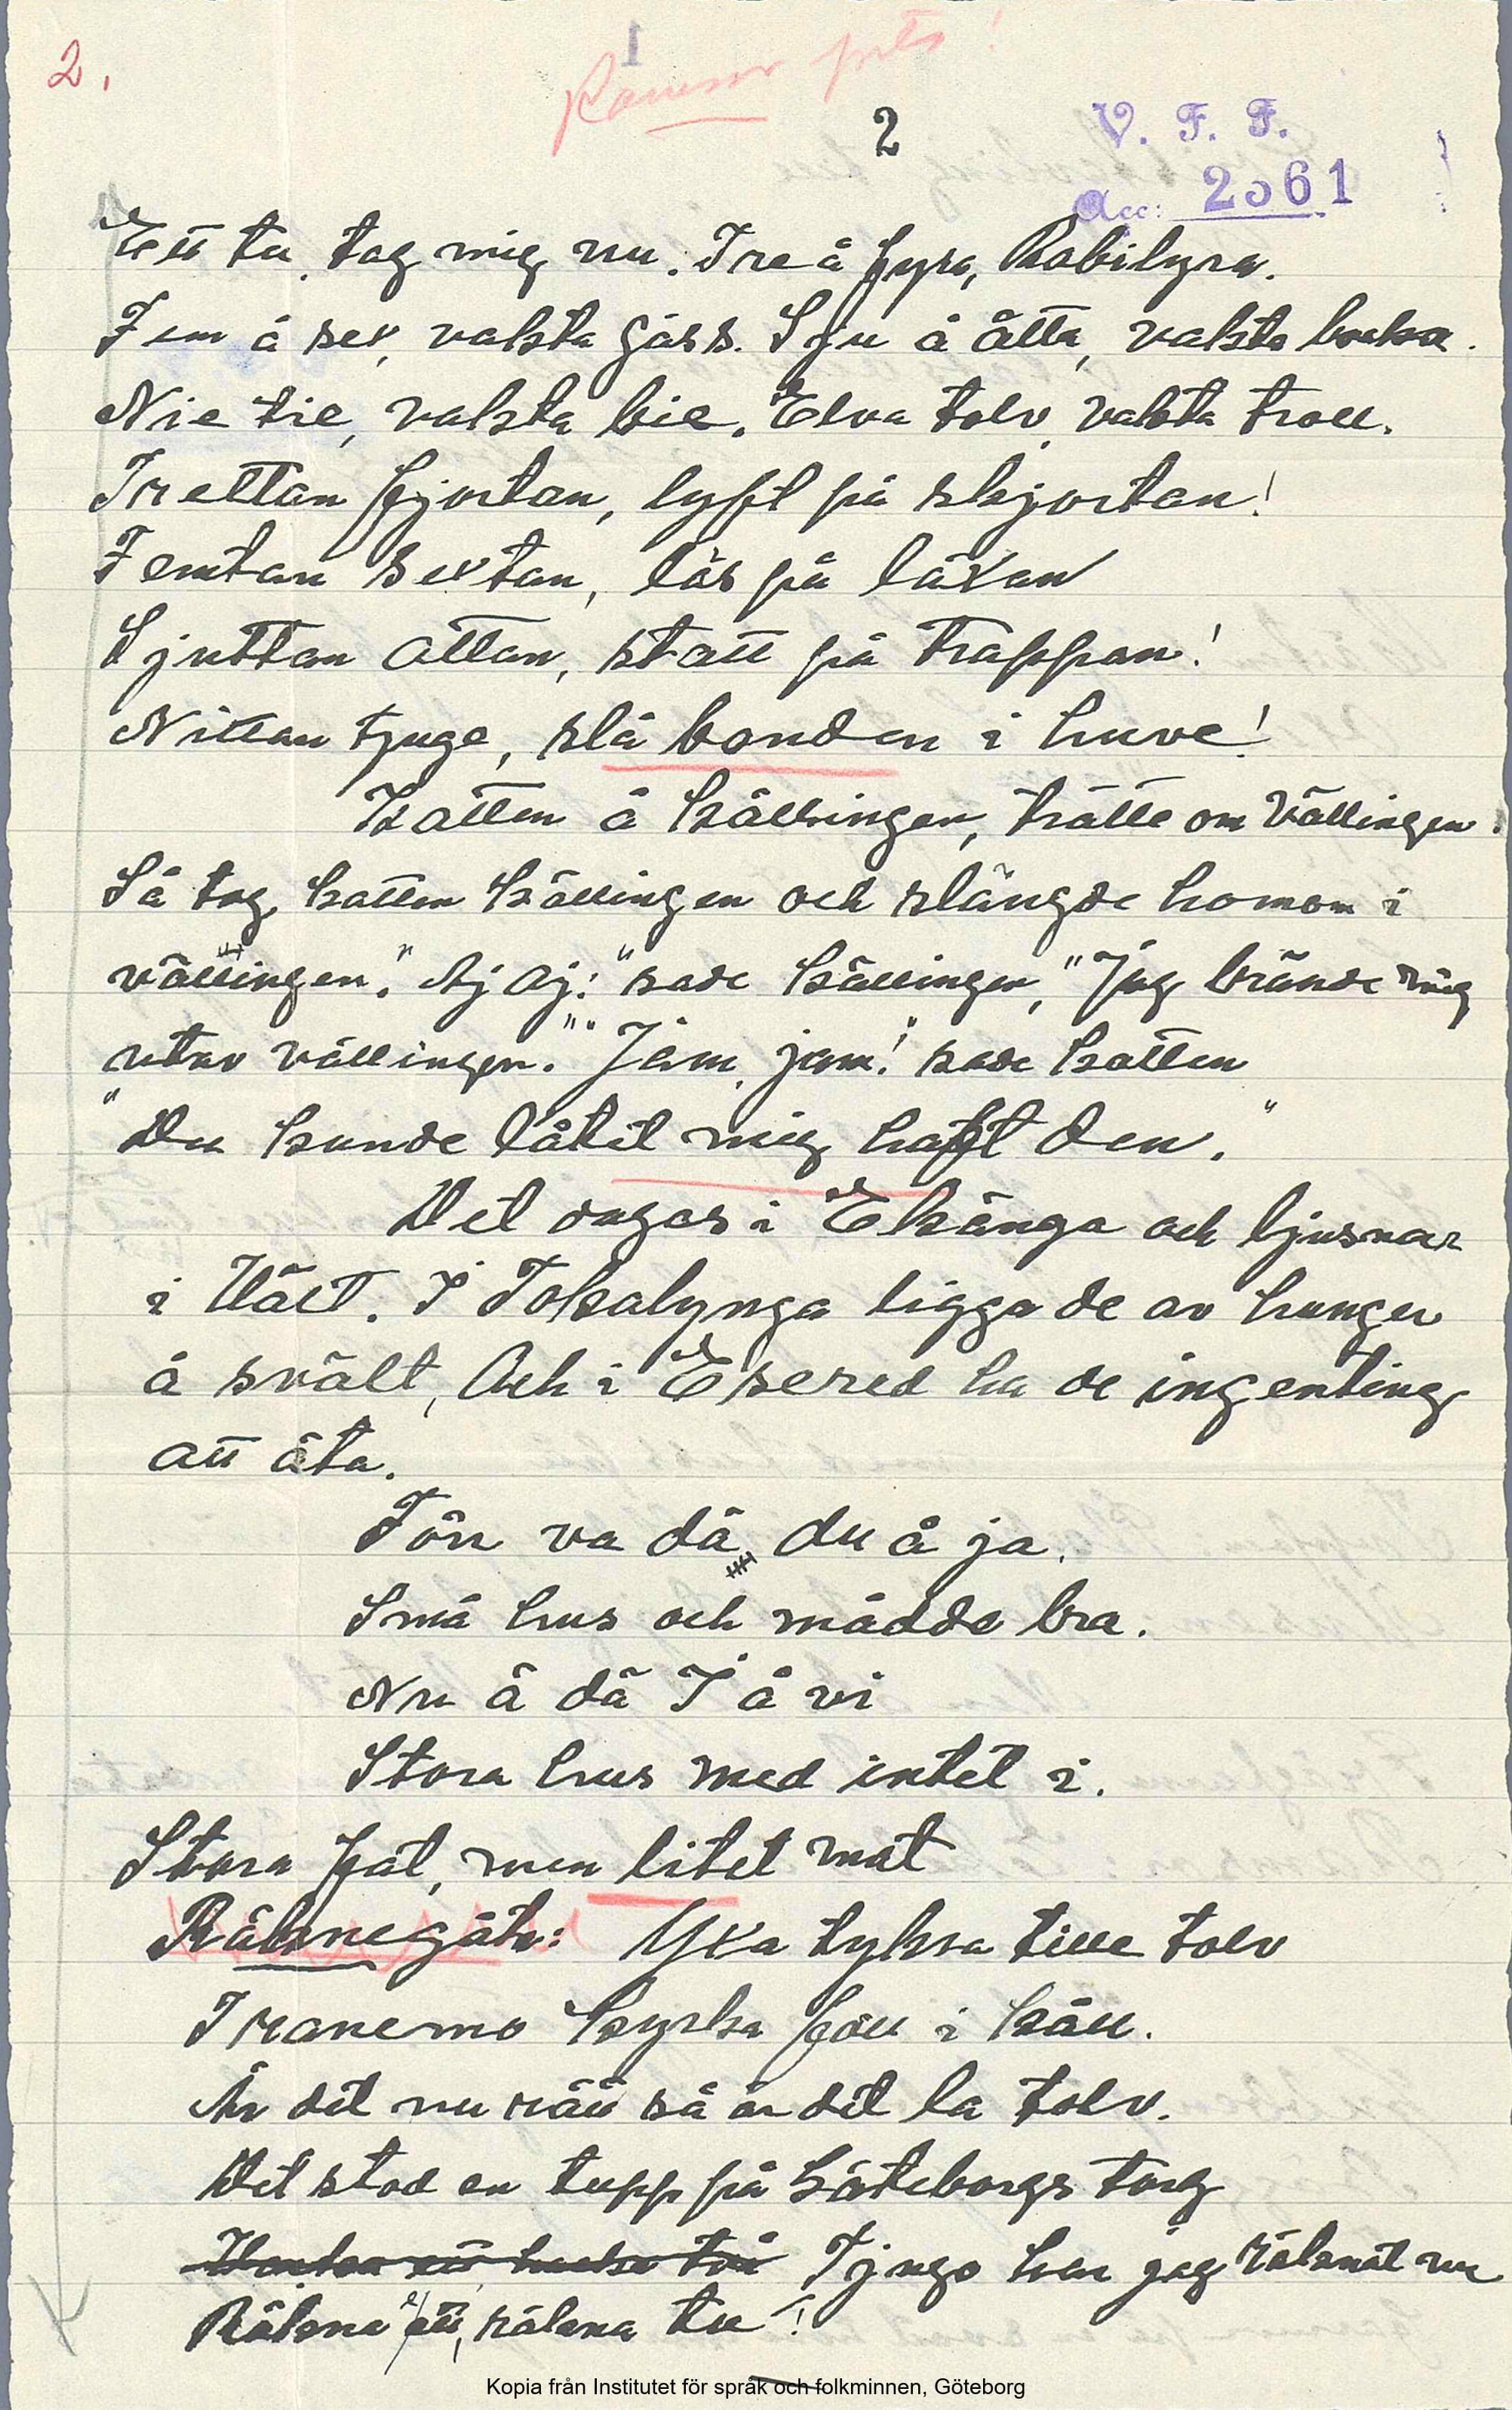 2.
Ramsor
2
V. F. F.
Acc: 2561
Ett tu, tag mig nu. Tre å fyra, Rabilyra.
Fem å sex, vakta gäss. Sju å åtta, vakta bocka.
Nie tie, vakta bie. Elva tolv, vakta troll.
Trettan fjortan, lyft på skjortan!
Femtan sextan, läs på läxan
Sjuttan attan, statt på trappan!
Nittan tjuge, slå bonden i huve!
Katten å källingen, trätte om vällingen.
Så tog katten källingen och slängde honom i
vällingen. "Aj aj!" sade källingen, "Jag brände mig
utav vällingen." "Jam, jam!" sade katten
"Du kunde låtit mig haft den."
Det dagas i Ekänga och ljusnar
i Väst. I Tokalynga ligga de av hunger
å svält, Och i Esered ha de ingenting
att äta.
Förr va dä, du å ja.
Små hus och mådde bra.
Nu ä dä I å vi
Stora hus med intet i.
Stora fat, men litet mat
Räknegåta: Yxa tykra tille tolv
Tranemo kyrka föll i käll.
Är det nu rätt så är det la tolv.
Det stod en tupp på Göteborgs torg
Tjugo har jag räknat nu
Räkna ett, räkna tu!
Kopia från Institutet för språk och folkminnen, Göteborg